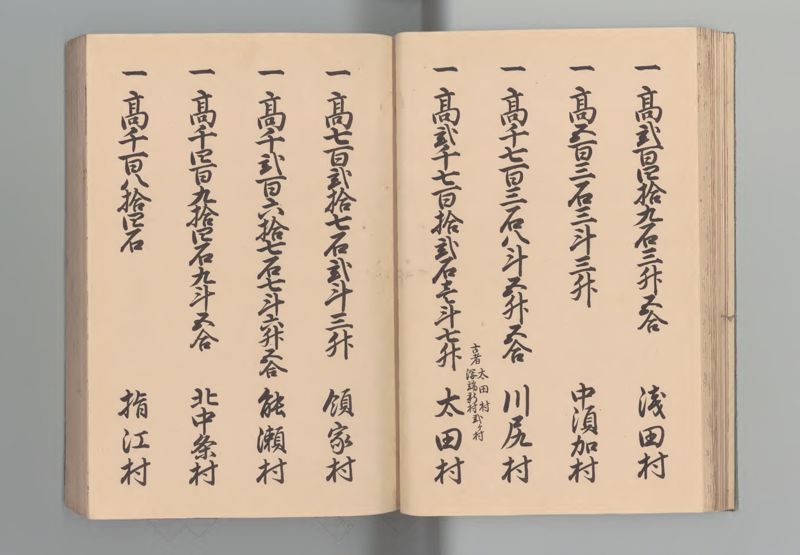 一 高弐百四拾九石三升五合 浅田村
一 高五百三石三斗三升 中須加村
一 高千七百三石八斗五升五合 川尻村
古者 太田村 深端新村 弐ケ村
一 高弐千七百拾弐石壱斗七升 太田村
一 高七百弐拾七石弐斗三升 領家村
一 高千弐百六拾七石七斗六升五合 能瀬村
一 高千四百九拾四石九斗五合 北中条村
一 高千百八拾四石 指江村